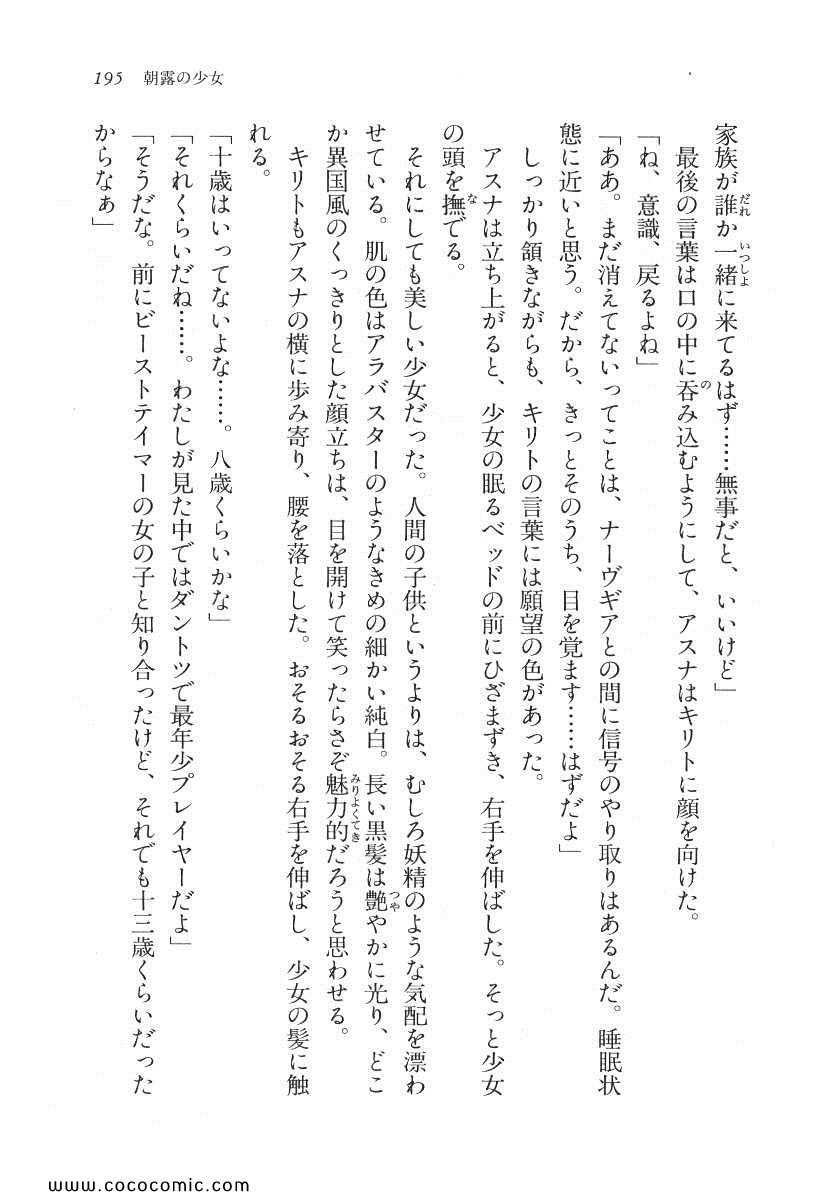 195 朝露の少女
家族が誰か一緒に来てるはず……無事だと、いいけど」
最後の言葉は口の中に呑み込むようにして、アスナはキリトに顔を向けた。
「ね、意識、戻るよね」
「ああ。まだ消えてないってことは、ナーヴギアとの間に信号のやり取りはあるんだ。睡眠状
態に近いと思う。だから、きっとそのうち、目を覚ます……はずだよ」
しっかり頷きながらも、キリトの言葉には願望の色があった。
アスナは立ち上がると、少女の眠るベッドの前にひざまずき、右手を伸ばした。そっと少女
の頭を撫でる。
それにしても美しい少女だった。人間の子供というよりは、むしろ妖精のような気配を漂わ
せている。肌の色はアラバスターのようなきめの細かい純白。長い黒髪は艶やかに光り、どこ
か異国風のくっきりとした顔立ちは、目を開けて笑ったらさぞ魅力的だろうと思わせる。
キリトもアスナの横に歩み寄り、腰を落とした。おそるおそる右手を伸ばし、少女の髪に触
れる。
「十歳はいってないよな……。八歳くらいかな」
「それくらいだね……。わたしが見た中ではダントツで最年少プレイヤーだよ」
「そうだな。前にビーストテイマーの女の子と知り合ったけど、それでも十三歳くらいだった
からなぁ」
www.cococomic.com